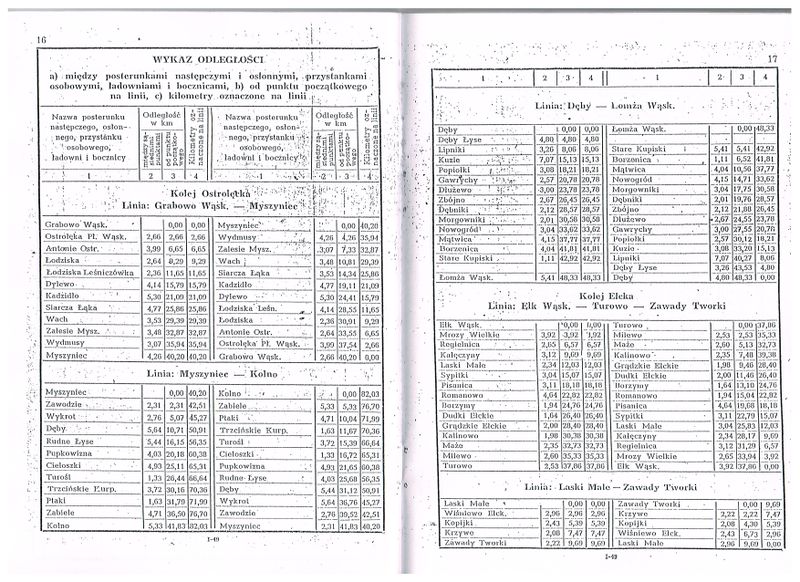 16
WYKAZ ODLEGŁOŚCI
a) między posterunkami następczymi i osłonnymi, przystankami
osobowymi, ładowniami i bocznicami, b) od punktu początkowego
na linii, c) kilometry oznaczone na linii
Nazwa posterunku następczego, osłonnego, przystanku osobowego, ładowni i bocznicy | Odległość w km | między sąsiednimi punktami | od punktu początkowego | Kilometry oznaczone na linii | Nazwa posterunku następczego, osłonnego, przystanku osobowego, ładowni i bocznicy | Odległość w km | między sąsiednimi punktami | od punktu początkowego | Kilometry oznaczone na linii
1 2 3 4 1 2 3 4
Kolej Ostrołęcka
Linia: Grabowo Wąsk. — Myszyniec
Grabowo Wąsk. 0,00 0,00 Myszyniec 0,00 40,20
Ostrołęka Pł. Wąsk. 2,66 2,66 2,66 Wydmusy 4,26 4,26 35,94
Antonie Ostr. 3,99 6,65 6,65 Zalesie Mysz. 3,07 7,33 32,87
Łodziska 2,64 9,29 9,29 Wach 3,48 10,81 29,39
Łodziska Leśniczówka 2,36 11,65 11,65 Siarcza Łąka 3,53 14,34 25,86
Dylewo 4,14 15,79 15,79 Kadzidło 4,77 19,11 21,09
Kadzidło 5,30 21,09 21,09 Dylewo 5,30 24,41 15,79
Siarcza Łąka 4,77 25,86 25,86 Łodziska Leśn. 4,14 28,55 11,65
Wach 3,53 29,39 29,39 Łodziska 2,36 30,91 9,29
Zalesie Mysz. 3,48 32,87 32,87 Antonie Ostr. 2,64 33,55 6,65
Wydmusy 3,07 35,94 35,94 Ostrołęka Pł. Wąsk. 3,99 37,54 2,66
Myszyniec 4,26 40,20 40,20 Grabowo Wąsk. 2,66 40,20 0,00
Linia: Myszyniec — Kolno
Myszyniec 0,00 40,20 Kolno 0,00 82,03
Zawodzie 2,31 2,31 42,51 Zabiele 5,33 5,33 76,70
Wykrot 2,76 5,07 45,27 Ptaki 4,71 10,04 71,99
Dęby 5,64 10,71 50,91 Trzcińskie Kurp. 1,63 11,67 70,36
Rudne Łyse 5,44 16,15 56,35 Turośl 3,72 15,39 66,64
Pupkowizna 4,03 20,18 60,38 Cieloszki 1,33 16,72 65,31
Cieloszki 4,93 25,11 65,31 Pupkowizna 4,93 21,65 60,38
Turośl 1,33 26,44 66,64 Rudne Łyse 4,03 25,68 56,35
Trzcińskie Kurp. 3,72 30,16 70,36 Dęby 5,44 31,12 50,91
Ptaki 1,63 31,79 71,99 Wykrot 5,64 36,76 45,27
Zabiele 4,71 36,50 76,70 Zawodzie 2,76 39,52 42,51
Kolno 5,33 41,83 82,03 Myszyniec 2,31 41,83 40,20
I-49
17
1 2 3 4 1 2 3 4
Linia: Dęby — Łomża Wąsk.
Dęby 0,00 0,00 Łomża Wąsk. 0,00 48,33
Dęby Łyse 4,80 4,80 4,80
Lipniki 3,26 8,06 8,06 Stare Kupiski 5,41 5,41 42,92
Kuzie 7,07 15,13 15,13 Borzenica 1,11 6,52 41,81
Popiołki 3,08 18,21 18,21 Mątwica 4,04 10,56 37,77
Gawrychy 2,57 20,78 20,78 Nowogród 4,15 14,71 33,62
Dłużewo 3,00 23,78 23,78 Morgowniki 3,04 17,75 30,58
Zbójno 2,67 26,45 26,45 Dębniki 2,01 19,76 28,57
Dębniki 2,12 28,57 28,57 Zbójno 2,12 21,88 26,45
Morgowniki 2,01 30,58 30,58 Dłużewo 2,67 24,55 23,78
Nowogród 3,04 33,62 33,62 Gawrychy 3,00 27,55 20,78
Mątwica 4,15 37,77 37,77 Popiołki 2,57 30,12 18,21
Borzenica 4,04 41,81 41,81 Kuzie 3,08 33,20 15,13
Stare Kupiski 1,11 42,92 42,92 Lipniki 7,07 40,27 8,06
Dęby Łyse 3,26 43,53 4,80
Łomża Wąsk. 5,41 48,33 48,33 Dęby 4,80 48,33 0,00
Kolej Ełcka
Linia: Ełk Wąsk. — Turowo — Zawady Tworki
Ełk Wąsk. 0,00 0,00 Turowo 0,00 37,86
Mrozy Wielkie 3,92 3,92 3,92 Milewo 2,53 2,53 35,33
Regielnica 2,65 6,57 6,57 Maże 2,60 5,13 32,73
Kałęczyny 3,12 9,69 9,69 Kalinowo 2,35 7,48 30,38
Laski Małe 2,34 12,03 12,03 Grądzkie Ełckie 1,98 9,46 28,40
Sypitki 3,04 15,07 15,07 Dudki Ełckie 2,00 11,46 26,40
Pisanica 3,11 18,18 18,18 Borzymy 1,64 13,10 24,76
Romanowo 4,64 22,82 22,82 Romanowo 1,94 15,04 22,82
Borzymy 1,94 24,76 24,76 Pisanica 4,64 19,68 18,18
Dudki Ełckie 1,64 26,40 26,40 Sypitki 3,11 22,79 15,07
Grądzkie Ełckie 2,00 28,40 28,40 Laski Małe 3,04 25,83 12,03
Kalinowo 1,98 30,38 30,38 Kałęczyny 2,34 28,17 9,69
Maże 2,35 32,73 32,73 Regielnica 3,12 31,29 6,57
Milewo 2,60 35,33 35,33 Mrozy Wielkie 2,65 33,94 3,92
Turowo 2,53 37,86 37,86 Ełk Wąsk. 3,92 37,86 0,00
Linia: Laski Małe — Zawady Tworki
Laski Małe 0,00 0,00 Zawady Tworki 0,00 9,69
Wiśniowo Ełck. 2,96 2,96 2,96 Krzywe 2,22 2,22 7,47
Kopijki 2,43 5,39 5,39 Kopijki 2,08 4,30 5,39
Krzywe 2,08 7,47 7,47 Wiśniowo Ełck. 2,43 6,73 2,96
Zawady Tworki 2,22 9,69 9,69 Laski Małe 2,96 9,69 0,00
I-49